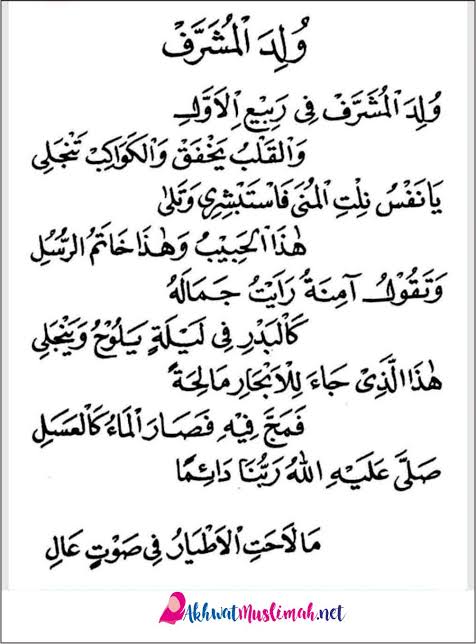 وُلِدَ الْمُشَرَّفْ
وُلِدَ الْمُشَرَّفْ فِى رَبِيْعِ الْاَوَّلِ
وَالْقَلْبُ يَخْفَقْ وَالْكَوَاكِبْ تَنْجَلِى
يَانَفْسُ نِلْتِ الْمُنَى فَاسْتَبْشِرِى وَتَلَى
هٰذَا الْحَبِيْبُ وَهٰذَا خَاتَمُ الرُّسُلِ
وَتَقُوْلُ آمِنَةُ رَاَيْتُ جَمَالَهُ
كَالْبَدْرِ فِى لَيْلَةٍ يَلُوْحُ وَيَنْجَلِى
هٰذَا الَّذِىْ جَاءَ لِلْاَبْحَارِ مَالِحَةً
فَمَجَّ فِيْهِ فَصَارَ الْمَاءُ كَالْعَسَلِ
صَلَّى عَلَيْهِ اللّٰهُ رَبُّنَا دَائِمًا
مَالَاحَتِ الْاَطْيَارُ فِى صَوْتٍ عَالِ
AkhwatMuslimah.net